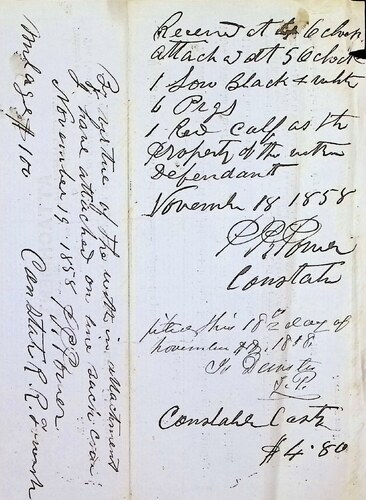 Received at 6 Oclock
attachd at 5 Oclock
1 Sow Black & white
6 Pigs
1 Red Calf as the
Property of the within
Defendant
November 18 1858
Constabl
filed this 18th day of
November
J.P.
Constable Costs
$4.80
By virtue of the within attachment
I have attached on
November 19 1858
Milage $1 00
Constabl